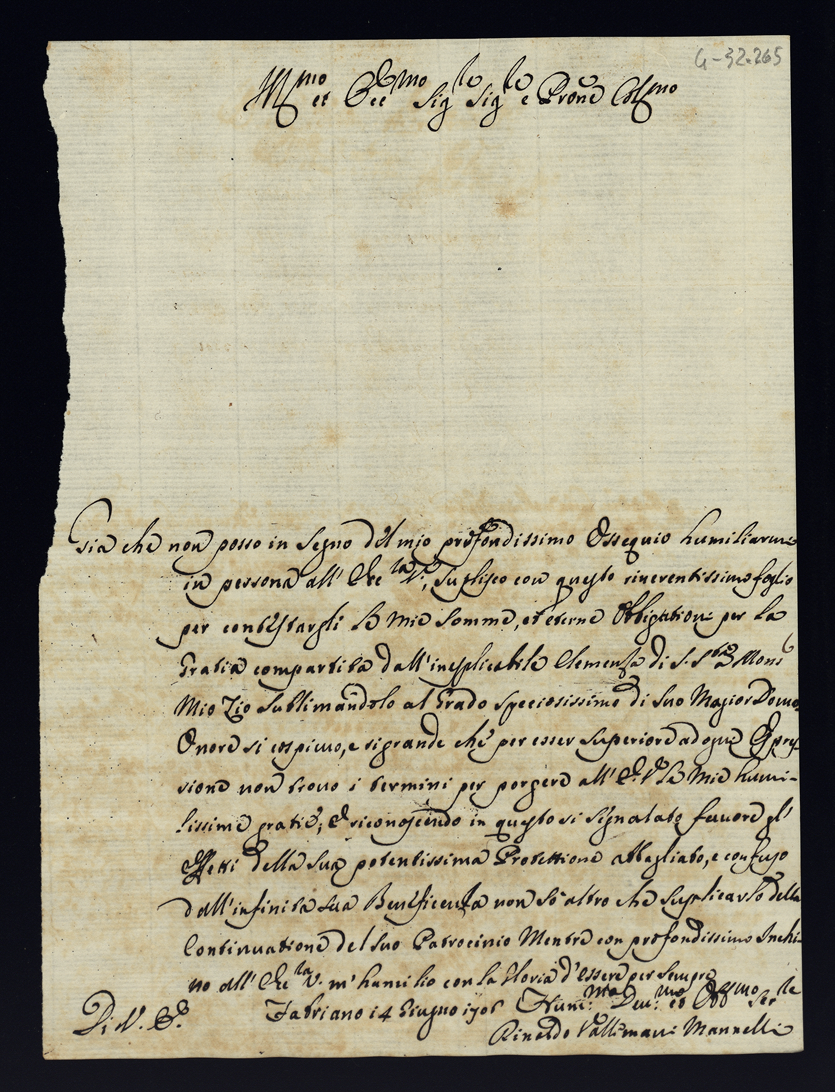 G-32.265
Ill.mo et Ecc.mo Sig.re Sig.re e Prone Col.mo
Gia che non posso in segno del mio profondissimo Ossequio humiliarme
in persona all' Ecc.za V., suplisco con questo riverentissimo foglio
per contestargli le mie somme, et eterne Obligationi per la
Gratia compartita dall'inesplicabile Clemenza di S. S.tà à Mons.
Mio Zio sublimandolo al Grado speciosissimo di suo Magior Domo
Onore si cospicuo, e si grande che per esser superiore ad ogni Espres
sione non trovo i termini per porgere all' E. V. le mie humi-
lissime gratie, e riconoscendo in questo si segnalato favore gl'
Effetti della sua potentissima Protettione abbagliato, e confuso
dall'infinita sua Beneficenza non sò altro che suplicarlo della
Continuatione del suo Patrocinio Mentre con profondissimo Inchi-
no all' Ecc.za V. m' humilio con la Gloria d'essere per sempre
Di V. E.
Fabriano 14 Giugno 1706
Hum.mo Dev.mo et Obb.mo Ser.re
Rinaldo Vallemani Mannelli